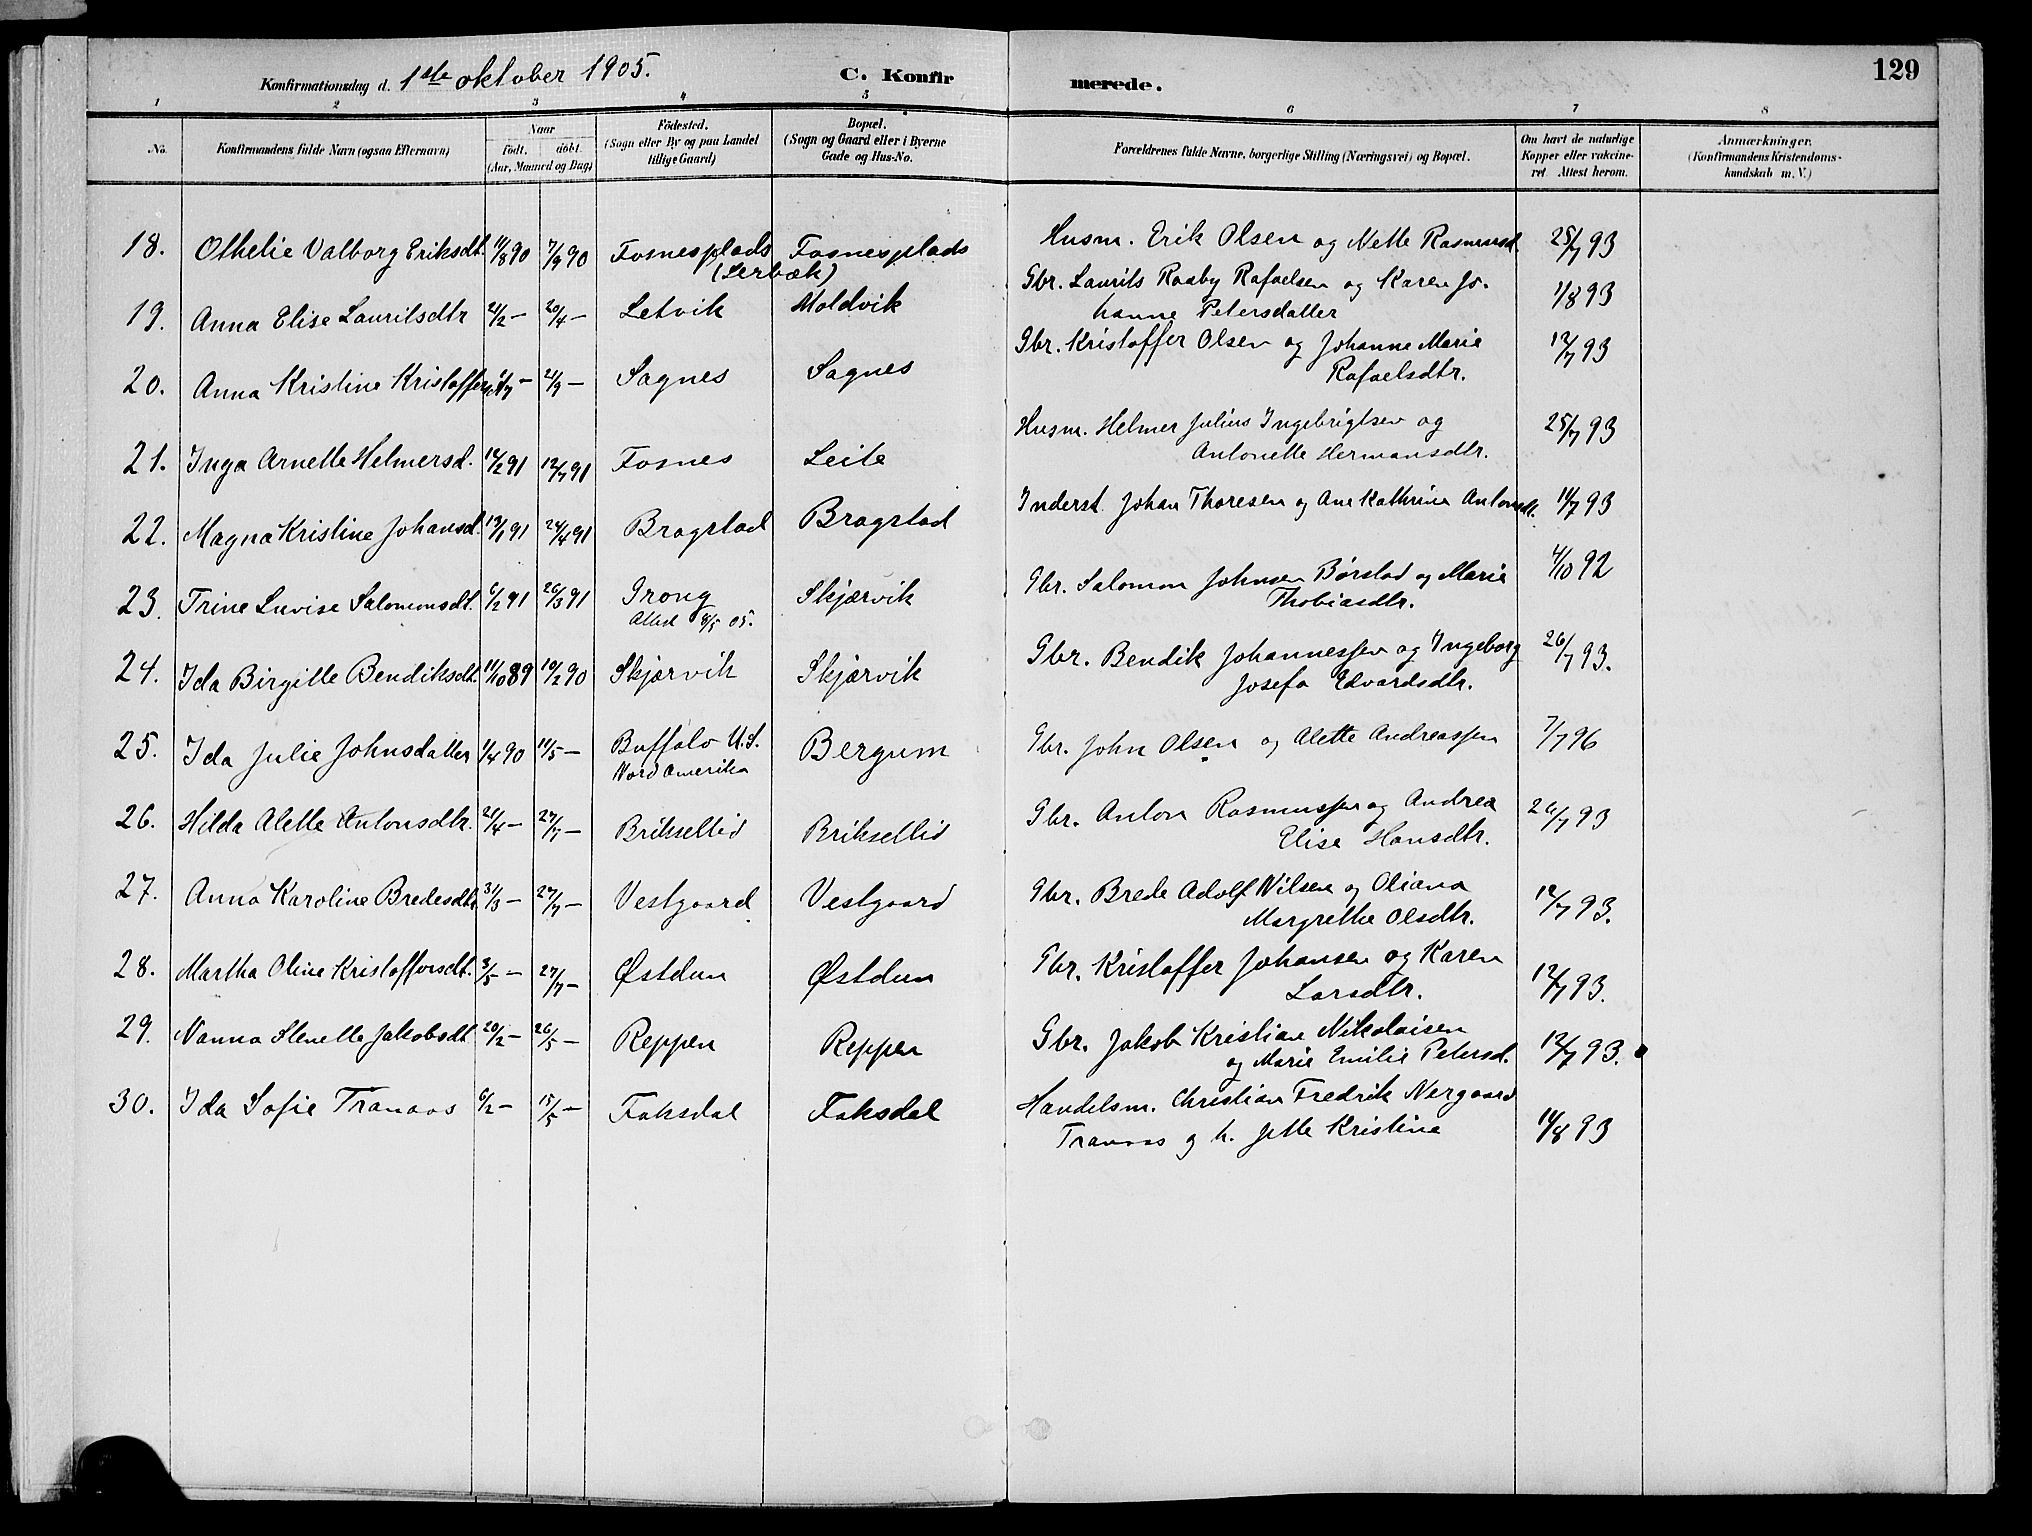 129
Konfirmationsdag d. 1ste oktober 1905. C. Konfirmerede.
1 2 3 4 5 6 7 8
No. Konfirmandens fulde Navn (ogsaa Efternavn) Naar født. døbt. (Aar, Maaned og Dag) Fødested. (Sogn eller By og paa Landet tillige Gaard) Bopæl. (Sogn og Gaard eller i Byerne Gade og Hus-No. Forældrenes fulde Navne, borgerlige Stilling (Næringsvei) og Bopæl. Om havt de naturlige Kopper eller vakcineret. Attest herom. Anmærkninger. (Konfirmandens Kristendomskundskab m. V.)
18. Othelie Valborg Eriksdt. 11/8 90 7/9 90 Fosnesplads (Lerbæk) Fosnesplads Husm. Erik Olsen og Nette Rasmusd. 25/7 93
19. Anna Elise Lauritsdtr 2/2 — 20/4 — Letvik Moldvik Gbr. Laurits Raaby Rafaelsen og Karen Jo-
hanne Petersdatter 1/8 93
20. Anna Kristine Kristoffersdt. — 21/9 — Sagnes Sagnes Gbr. Kristoffer Olsen og Johanne Marie
Rafaelsdtr. 12/7 93
21. Inga Arnette Helmersd. 14/2 91 12/7 91 Fosnes Leite Husm. Helmer Julius Ingebrigtsen og
Antonette Hermansdtr. 25/7 93
22. Magna Kristine Johansd. 19/1 91 24/4 91 Bragstad Bragstad Inderst. Johan Thoresen og Ane Kathrine Antonsdt. 14/7 93
23. Trine Luvise Salomonsdt. 6/2 91 26/3 91 Grong Skjærvik Gbr. Salomon Johnsen Børstad og Marie
Attest 8/5 05. Thobiasdtr. 4/10 92
24. Ida Birgitte Bendiksdt. 11/10 89 10/2 90 Skjærvik Skjærvik Gbr. Bendik Johannessen og Ingeborg
Josefa Edvardsdtr. 26/7 93.
25. Ida Julie Johnsdatter 1/4 90 11/5 — Buffalo U.S. Bergum Gbr. John Olsen og Alette Andreassen 7/7 96
Nord Amerika
26. Hilda Alette Antonsdtr. 21/4 — 27/7 — Briksellid Briksellid Gbr. Anton Rasmussen og Andrea
Elise Hansdtr. 26/7 93
27. Anna Karoline Bredesdtr 31/3 — 27/7 — Vestgaard Vestgaard Gbr. Brede Adolf Nilsen og Oliana
Margrethe Olsdtr. 12/7 93.
28. Martha Oline Kristoffersdt. 3/5 — 27/7 — Østdun Østdun Gbr. Kristoffer Johansen og Karen
Larsdtr. 12/7 93.
29. Nanna Stenette Jakobsdt 20/2 — 26/5 — Reppen Reppen Gbr. Jakob Kristian Nikolaisen
og Marie Emilie Petersd. 12/7 93.
30. Ida Sofie Tranaas 6/2 — 15/5 — Faksdal Faksdal Handelsm. Christian Fredrik Nergaard
Tranaas og h. Jette Kristine 14/8 93